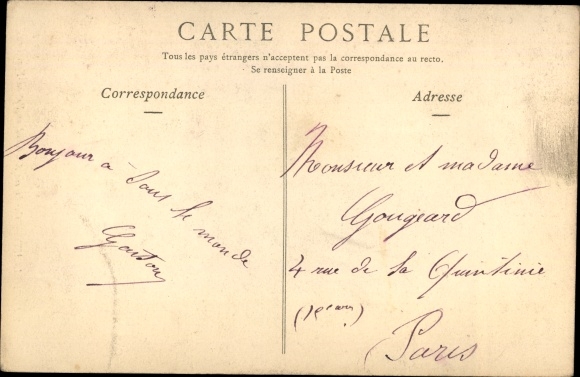 CARTE POSTALE
Tous les pays étrangers n'acceptent pas la correspondance au recto.
Se renseigner à la Poste
Correspondance
Bonjour à tous le monde
Gaston
Adresse
Monsieur et madame
Gougeard
4 rue de la Quintinie
Paris